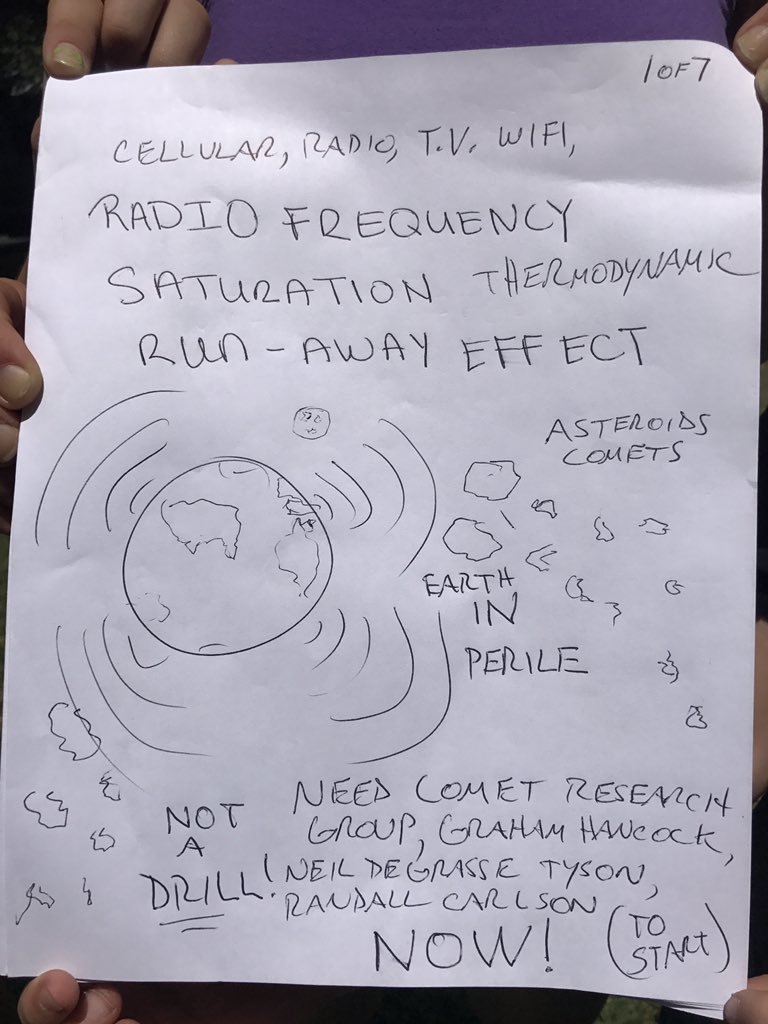 1 OF 7
CELLULAR, RADIO, T.V. WIFI,
RADIO FREQUENCY
SATURATION THERMODYNAMIC
RUN-AWAY EFFECT
ASTEROIDS
COMETS
EARTH
IN
PERILE
NOT
A
DRILL!
NEED COMET RESEARCH
GROUP, GRAHAM HANCOCK,
NEIL DEGRASSE TYSON,
RANDALL CARLSON
NOW!
(TO
START)